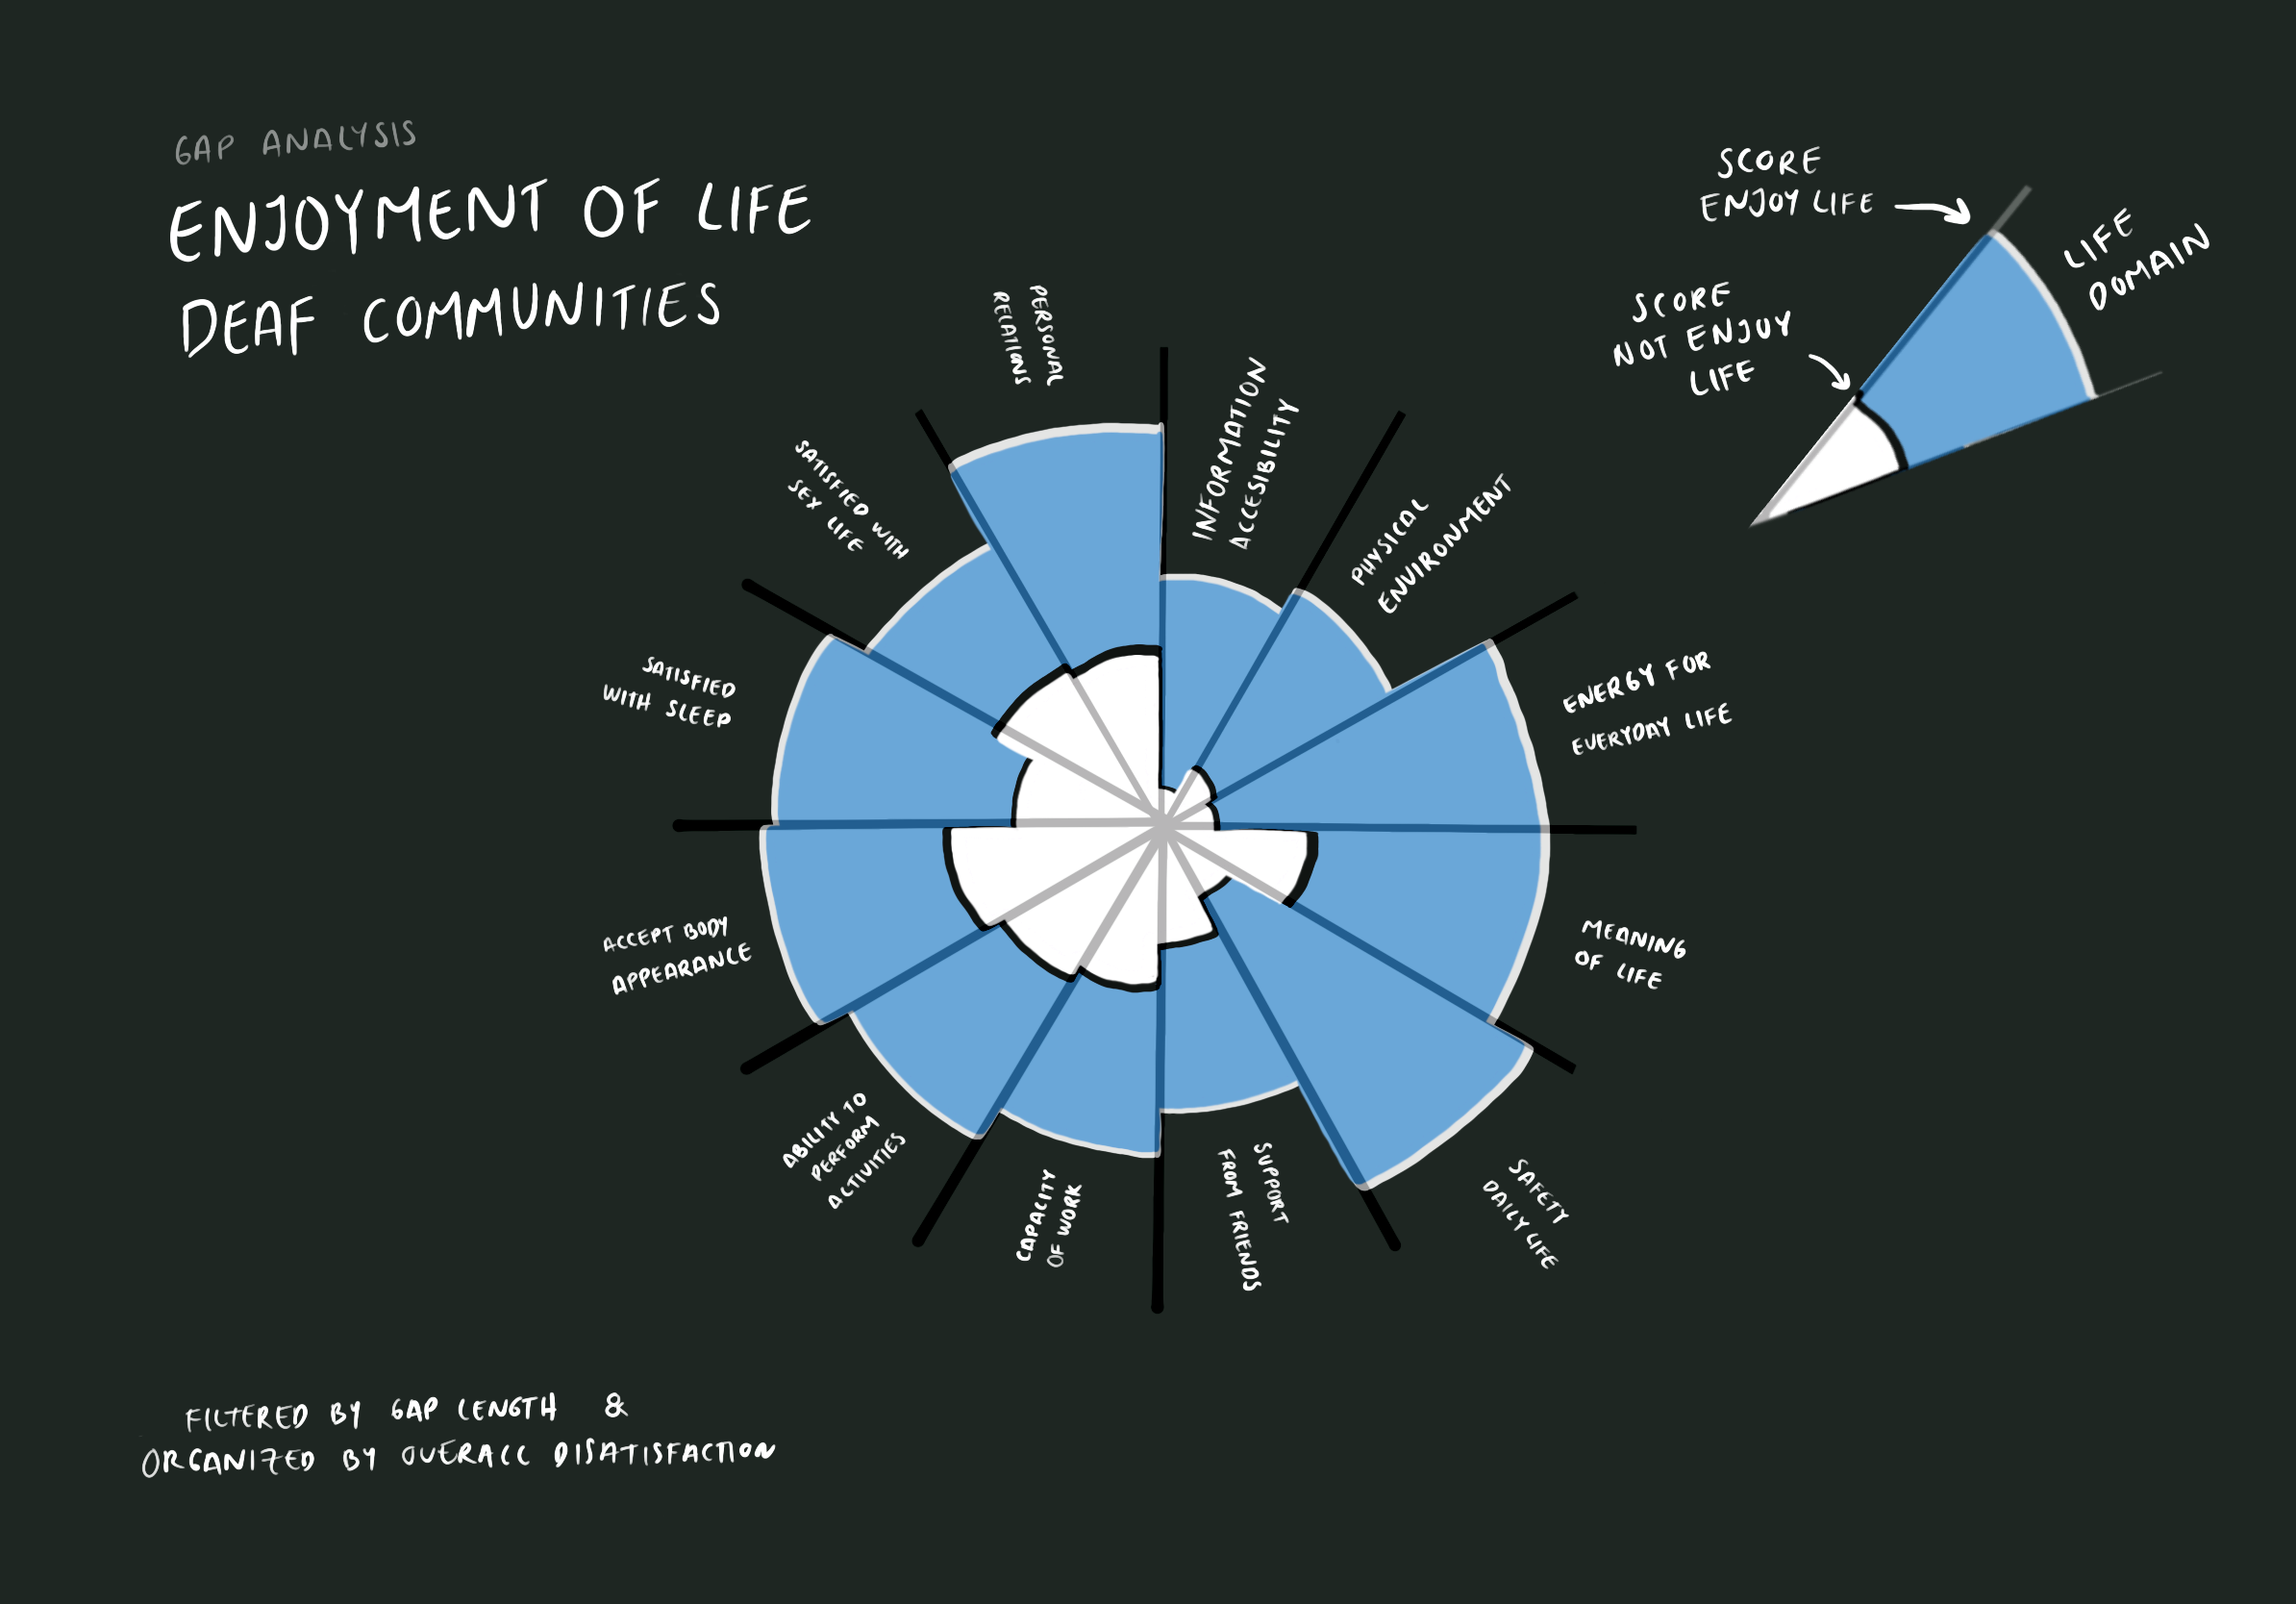 GAP ANALYSIS
ENJOYMENT OF LIFE
DEAF COMMUNITIES
SCORE
ENJOY LIFE
LIFE
DOMAIN
SCORE
NOT ENJOY
LIFE
PERSONAL
RELATIONS
INFORMATION
ACCESIBILITY
PHYSICAL
ENVIRONMENT
ENERGY FOR
EVERYDAY LIFE
MEANING
OF LIFE
SAFETY
DAILY LIFE
SUPPORT
FROM FRIENDS
CAPACITY
OF WORK
ABILITY TO
PERFORM
ACTIVITIES
ACCEPT BODY
APPEARANCE
SATISFIED
WITH SLEEP
SATISFIED WITH
SEX LIFE
FILTERED BY GAP LENGTH &
ORGANIZED BY OVERALL DISATISFACTION